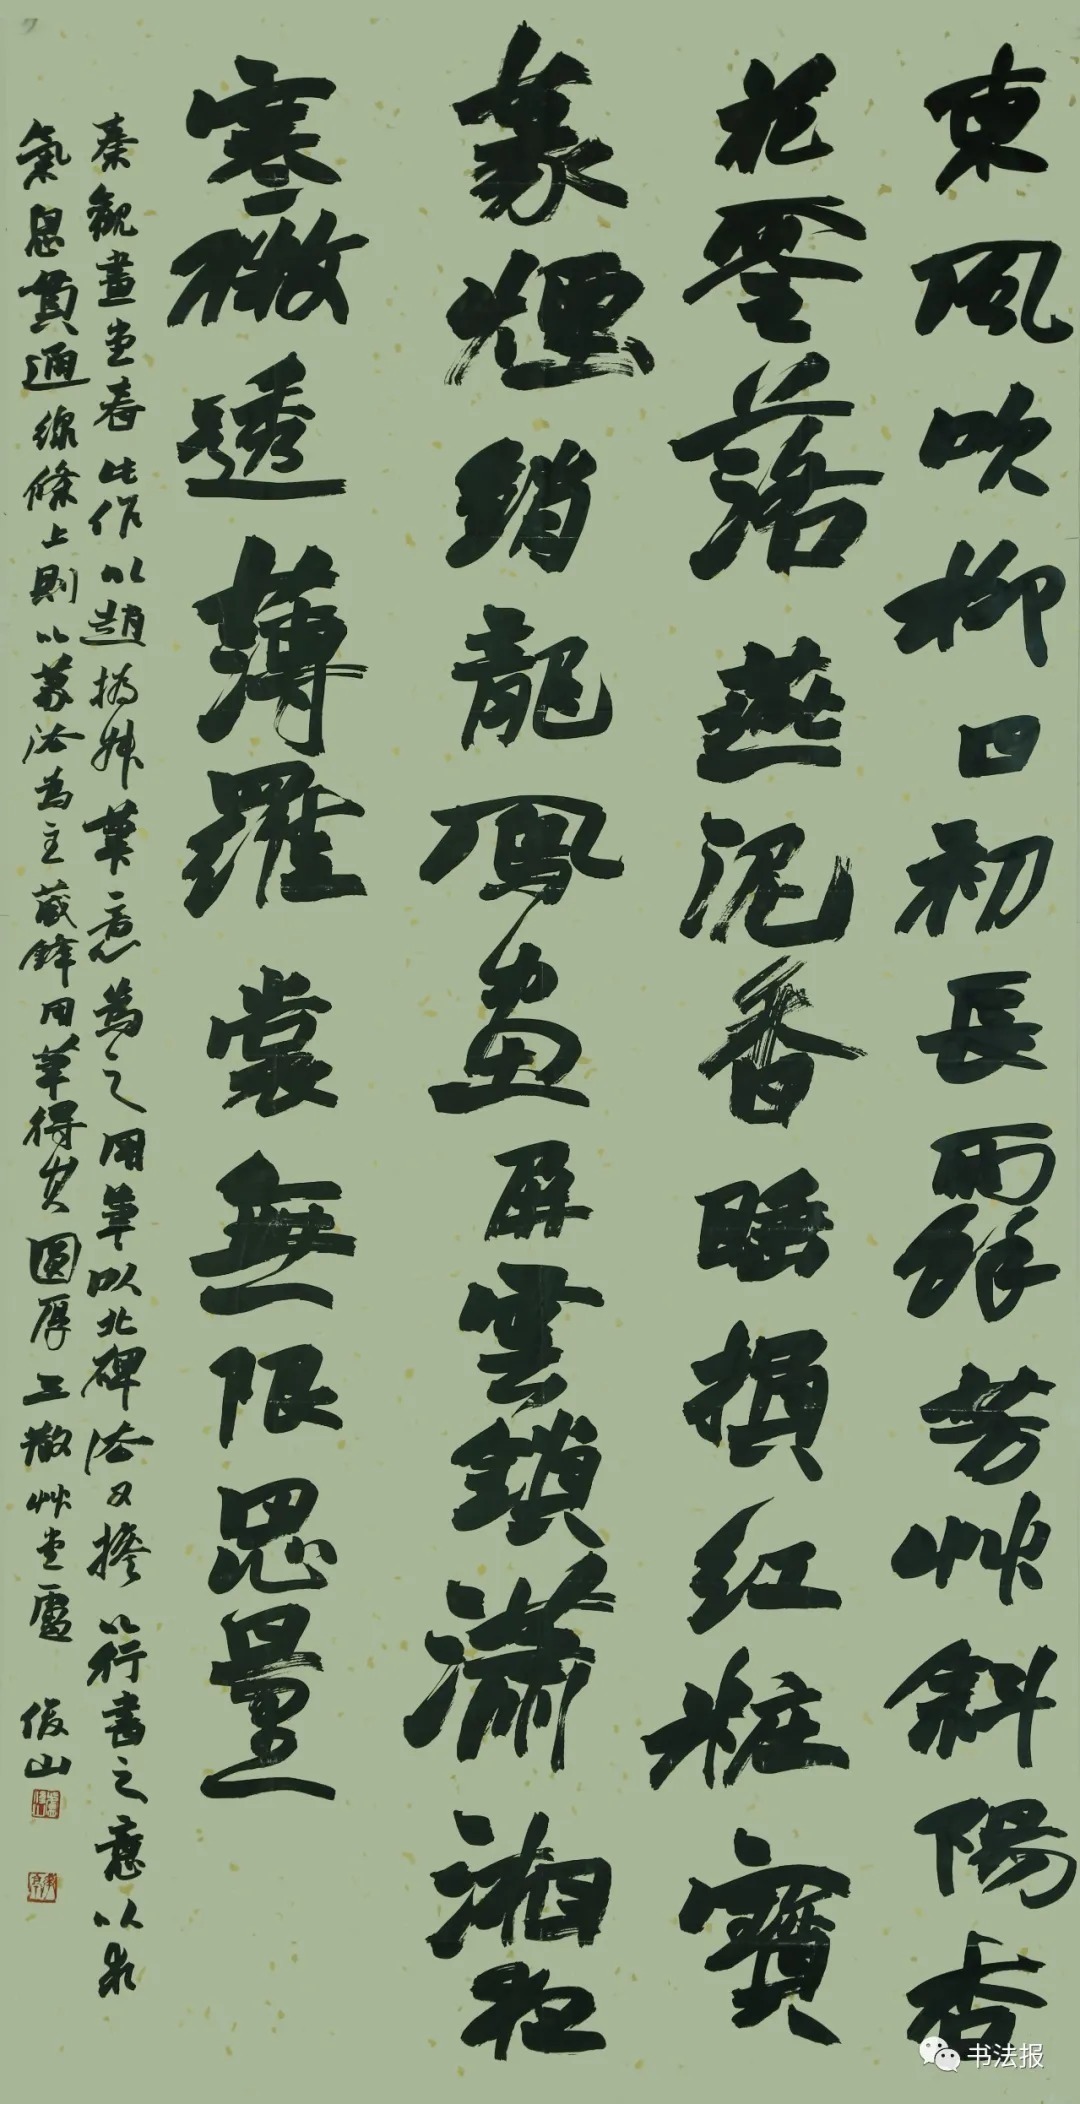 東風吹柳日初長雨餘芳艸斜陽杏
花零落燕泥香睡損紅粧寶
篆煙銷龍鳳畫屏雲鎖瀟湘夜
寒微透薄羅裳無限思量
秦觀畫堂春此作以趙撝叔筆意為之用筆以北碑法又摻以行書之意以求
氣息貫通線條上則以篆法為主藏鋒用筆得其圓厚三散艸堂盧俊山
书法报